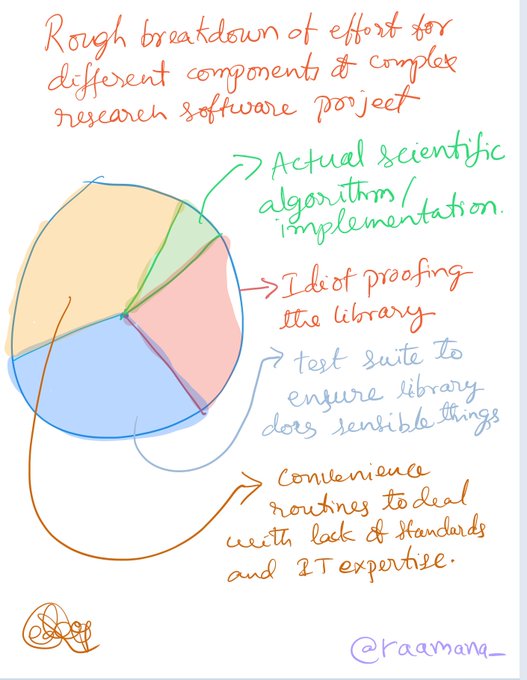 Rough breakdown of effort for
different components of complex
research software project
Actual scientific
algorithm/
implementation.
Idiot proofing
the library
test suite to
ensure library
does sensible things
Convenience
routines to deal
with lack of standards
and IT expertise.
@raamana_